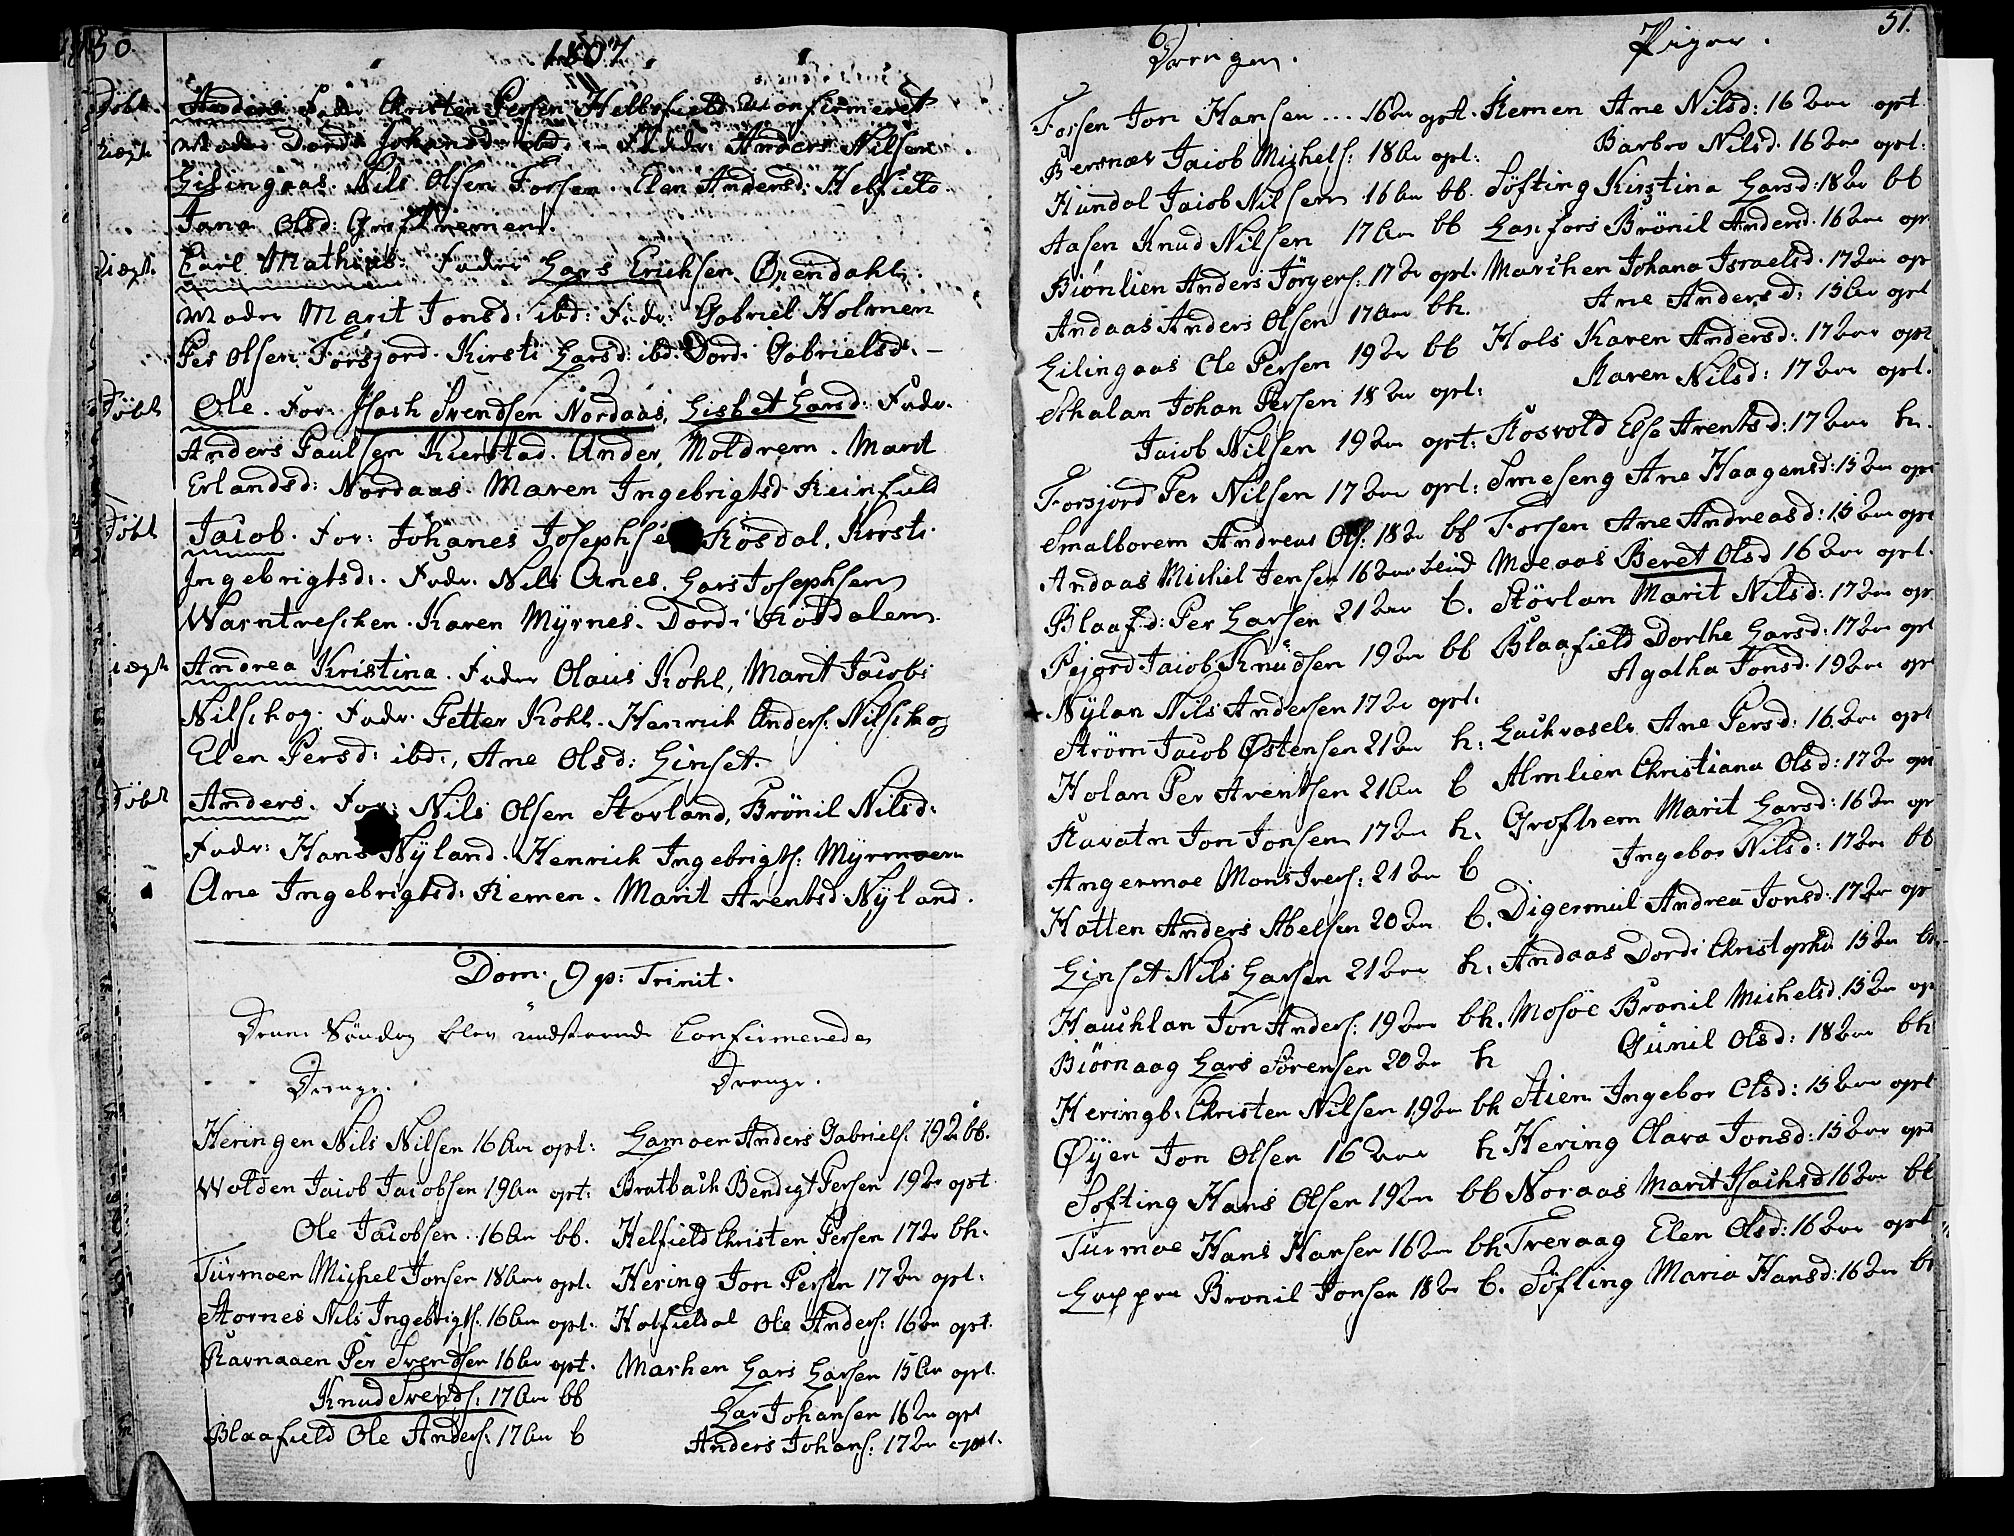 50
1807
Anders Fadr Christen Persen Helbofield Uconfirmeret
Moder Dordi Johansd: ibd. Faddr: Anders Nilsen
Lilingaas. Nils Olsen Forsen. Elen Andersd: Helfield
Jana Olsd:
Carl Mathias. Fader Lars Erichsen Ørendahl.
Moder Marit Jonsd: ibd: Fadr: Gabriel Holmen
Per Olsen Forsjord. Kirsti Larsd: ibd: Dordi Gabrielsd: –
Døbt
Ole. For: Isach Svendsen Nordaas, Lisbet Larsd: Fadr.
Anders Paulsen Kierstad. Ander Moldrem. Marit
Erlandsd: Nordaas. Maren Ingebrigtsd Reinfield
Døbt
Jacob. For: Johanes Josephsen Røsdal, Kirsti
Ingebrigtsd:. Fadr. Nils Anes. Lars Josephsen
Warntreschen. Karen Myrnes. Dordi Rosdalen
Andrea Kristina. Fader Olaus Kohl, Marit Jacobs
Nilschog. Fadr. Petter Kohl. Henrich Anders: Nilschog
Elen Persd: ibd:, Ane Olsd: Linset.
Døbt
Anders. For: Nils Olsen Stovland, Brönil Nilsd:
Fadr: Hans Nyland. Henrich Ingebrigts: Myrmoen
Ane Ingebrigtsd: Remen. Marit Arentsd Nyland.
Dom: 9 p: Trinit.
Denne Søndag blev Confirmerede
Drenge.
Heringen Nils Nilsen 16 opt:
Wolden Jacob Jacobsen 19 opt:
Ole Jacobsen. 16 bb.
Turmoen Michel Jonsen 18 opt:
Stornes Nils Ingebrigts. 16 opt:
Ravnaaen Per Svendsen 16 opt.
Knud Svends: 17 bb
Blaafield Ole Anders: 17 b
Drenge.
Lamoen Anders Gabriels: 19 bb.
Bratbach Bendigt Persen 19 opt
Helfield Christen Persen 17 bh.
Hering Jon Persen 17 opt:
Hatfieldal Ole Anders: 16 opt.
Marken Lars Larsen 15 opt.
Lar Johansen 16 opt
Anders Johans: 17 opt.
Drengen.
Forsen Jon Hansen ... 16 opt.
Bersnær Jacob Michels: 18 opt:
Hundal Jacob Nilsen 16 bb.
Aasen Knud Nilsen 17 bb
Biönlien Anders Jörgens: 17 opt.
Andaas Anders Olsen 17 bh.
Lilingaas Ole Persen 19 bb
Schalan Johan Persen 18 opt:
Jacob Nilsen 19 opt:
Forsjord Per Nilsen 17 opt:
Smalborem Andreas Ols: 18 bb
Andaas Michel Jensen 16
Blaaf:d: Per Larsen 21 b.
Pejord Jacob Knudsen 19 bb
Nylan Nils Andersen 17 opt:
Strøm Jacob Østensen 21 h:
Holan Per Arentsen 21 b
Ravatn Jon Jonsen 17 h.
Angermoe Mons Ivers: 21 b
Hatten Anders Abelsen 20 b.
Linset Nils Larsen 21 h:
Hauchlan Jon Anders: 19 bh.
Biörnaag Lars Sörensen 20 h
Heringb: Christen Nilsen 19 bh
Øyen Jon Olsen 16 h
Söfting Hans Olsen 19 bb
Turmoe Hans Hansen 16 bh
Bronil Jonsen 18 b.
Piger.
51.
Remen Ane Nilsd: 16 opt
Barbro Nilsd. 16 opt:
Söfting Kirstina Larsd: 18 bb
Laxfors Brönil Andersd. 16 op
Marchen Johana Israelsd: 17 op
Ane Andersd: 15 opt
Hals Karen Andersd: 17 opt
Karen Nilsd: 17 opt.
Rosvold Else Arentsd: 17 h.
Smeseng Ane Haagensd: 15 opt
Forsen Ane Andreasd: 15 opt
Moeaas Beret Olsd 16 opt.
Störlan Marit Nilsd: 17 op
Blaafield Dorthe Larsd: 17 opt
Agatha Jonsd: 19 op
Ane Persd: 16 opt
Almlien Christiana Olsd: 17 opt
Groftrem Marit Larsd: 16 op
Ingebor Nilsd: 17 bb
Digermul Andrea Jonsd: 17 op
Andaas Dordi Christophd 15
Mosöe Bronil Michelsd. 15 op
Gunil Olsd: 18 bh
Stien Ingebor Olsd: 15 opt
Hering Clara Jonsd: 15 opt
Noraas Marit Isachsd 16 bb
Treraag Elen Olsd: 16 opt
Söfting Maria Hansd: 16